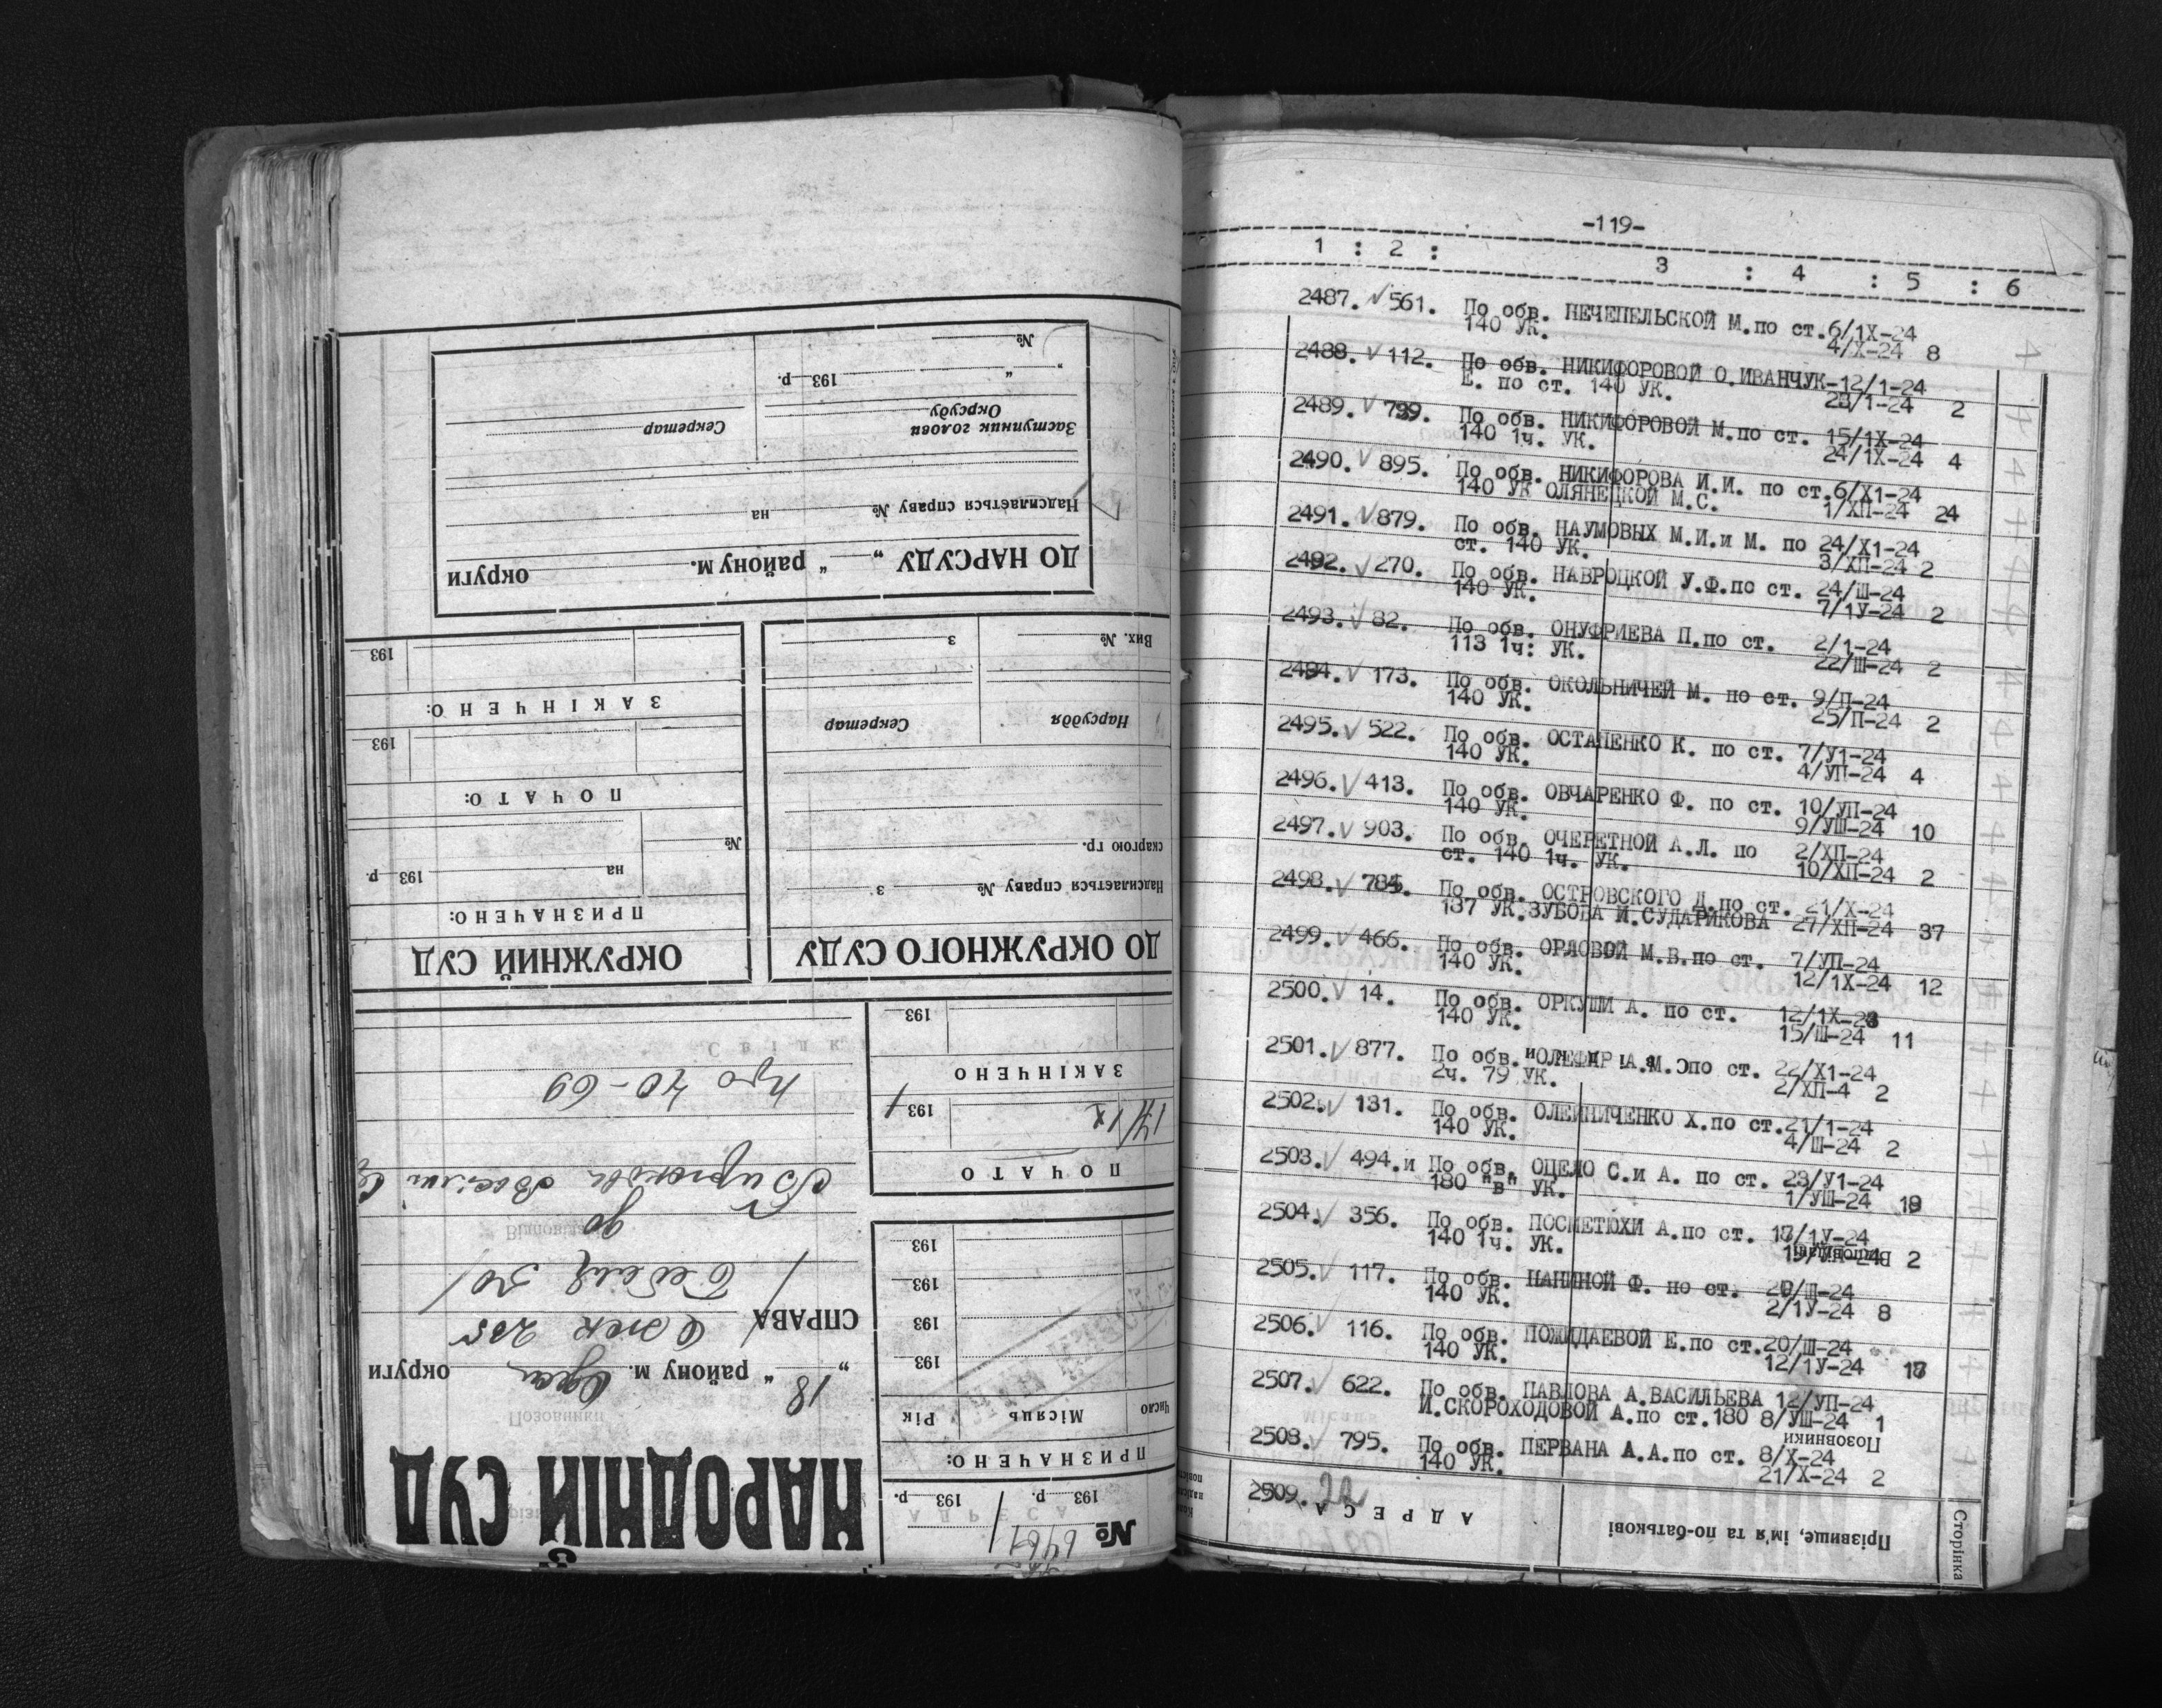 -119-
1 : 2 : 3 : 4 : 5 : 6
2487. √ 561. По обв. НЕЧЕПЕЛЬСКОЙ М.по ст.6/1Х-24
140 УК. 4/Х-24 8
2488. √ 112. По обв. НИКИФОРОВОЙ О.ИВАНЧУК-12/1-24
Е. по ст. 140 УК. 23/1-24 2
2489. √ 799. По обв. НИКИФОРОВОЙ М.по ст. 15/1Х-24
140 1ч. УК. 24/1Х-24 4
2490. √ 895. По обв. НИКИФОРОВА И.И. по ст.6/Х1-24
140 УК ОЛЯНЕЦКОЙ М.С. 1/ХП-24 24
2491. √ 879. По обв. НАУМОВЫХ М.И.и М. по 24/Х1-24
ст. 140 УК. 3/ХП-24 2
2492. √ 270. По обв. НАВРОЦКОЙ У.Ф.по ст. 24/Ш-24
140 УК. 7/1У-24 2
2493. √ 82. По обв. ОНУФРИЕВА П.по ст. 2/1-24
113 1ч: УК. 22/Ш-24 2
2494. √ 173. По обв. ОКОЛЬНИЧЕЙ М. по ст. 9/П-24
140 УК. 25/П-24 2
2495. √ 522. По обв. ОСТАПЕНКО К. по ст. 7/У1-24
140 УК. 4/УП-24 4
2496. √ 413. По обв. ОВЧАРЕНКО Ф. по ст. 10/УП-24
140 УК. 9/УШ-24 10
2497. √ 903. По обв. ОЧЕРЕТНОЙ А.Л. по 2/ХП-24
ст. 140 1ч. УК. 10/ХП-24 2
2498. √ По обв. ОСТРОВСКОГО Д.по ст. 21/Х-24
137 УК.ЗУБОВА И.СУДАРИКОВА 27/ХП-24 37
2499. √ 466. По обв. ОРЛОВОЙ М.В.по ст. 7/УП-24
140 УК. 12/1Х-24 12
2500. √ 14. По обв. ОРКУШИ А. по ст. 12/1Х-23
140 УК. 15/Ш-24 11
2501. √ 877. По обв. ОЛЕФИР А.М. по ст. 22/Х1-24
2ч. 79 УК. 2/ХП-4 2
2502. √ 131. По обв. ОЛЕЙНИЧЕНКО Х.по ст.21/1-24
140 УК. 4/Ш-24 2
2503. √ 494.и По обв. ОЦЕЛО С.и А. по ст. 23/У1-24
180 "в" УК. 1/УШ-24
2504. √ 356. По обв. ПОСМЕТЮХИ А.по ст. /1У-24
140 1ч. УК. 2
2505. √ 117. По обв. ПАНИНОЙ Ф. по ст. /Ш-24
140 УК. 2/1У-24 8
2506. √ 116. По обв. ПОЖИДАЕВОЙ Е.по ст.20/Ш-24
140 УК. 12/1У-24
2507. √ 622. По обв. ПАВЛОВА А.ВАСИЛЬЕВА 12/УП-24
И.СКОРОХОДОВОЙ А.по ст.180 8/УШ-24 1
2508. √ 795. По обв. ПЕРВАНА А.А.по ст. 8/Х-24
140 УК. 21/Х-24 2
2509.
Позовники
Сторінка
Прізвище, ім'я та по-батькові
АДРЕСА
НАРОДНІЙ СУД
„ 18 “ району м. Одеси округи
СПРАВА
до
про 70-69
№
193 р. 193 р.
ПРИЗНАЧЕНО:
Число Місяць Рік
193
193
193
193
ПОЧАТО
14/IX 193
ЗАКІНЧЕНО
193
ДО ОКРУЖНОГО СУДУ
Надсилається справу № з
скаргою гр.
Нарсуддя Секретар
Вих. № з
ОКРУЖНИЙ СУД
ПРИЗНАЧЕНО:
на 193 р.
№
ПОЧАТО:
193
ЗАКІНЧЕНО:
193
ДО НАРСУДУ „ “ району м. округи
Надсилається справу № на
Заступник голови
Окрсуду
Секретар
„ “ 193 р.
№